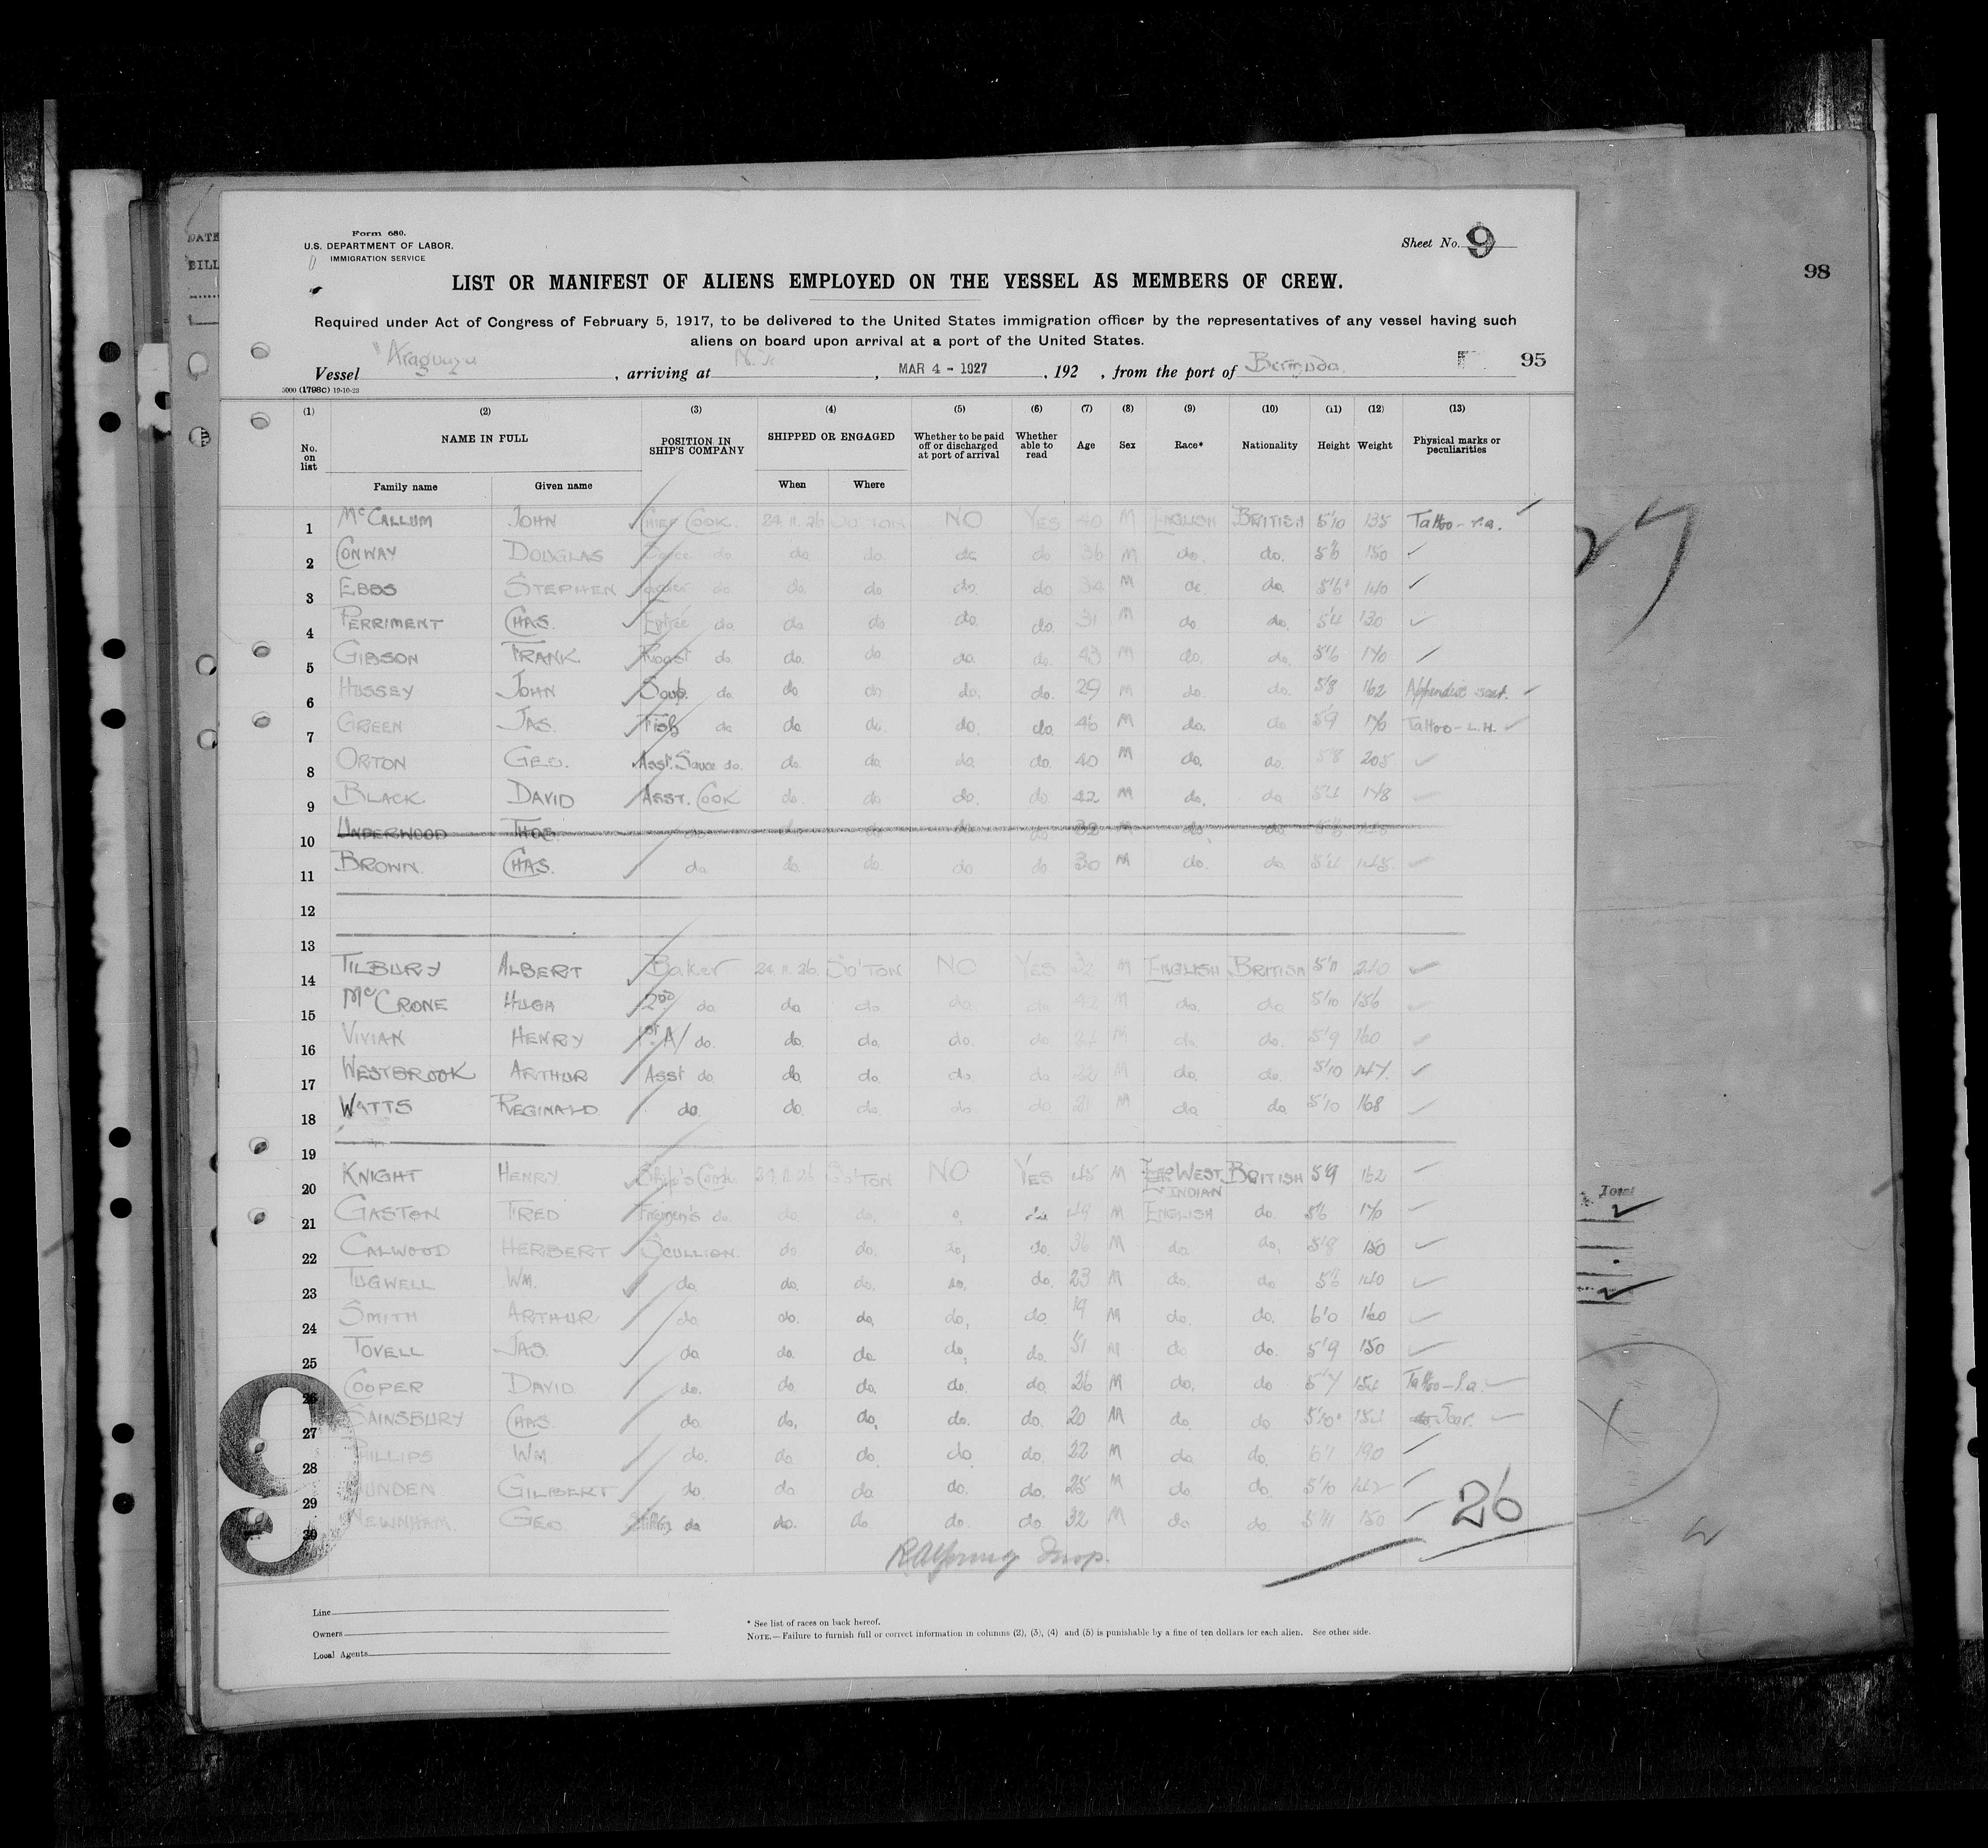 DATE
BILL
Form 680.
U.S. DEPARTMENT OF LABOR.
IMMIGRATION SERVICE
Sheet No. 9
98
LIST OR MANIFEST OF ALIENS EMPLOYED ON THE VESSEL AS MEMBERS OF CREW.
Required under Act of Congress of February 5, 1917, to be delivered to the United States immigration officer by the representatives of any vessel having such
aliens on board upon arrival at a port of the United States.
Vessel "Araguaya , arriving at N.Y. , MAR 4 - 1927 , 192 , from the port of Bermuda. 95
5000 (1798C) 19-10-23
(1) (2) (3) (4) (5) (6) (7) (8) (9) (10) (11) (12) (13)
No. on list NAME IN FULL POSITION IN SHIP'S COMPANY SHIPPED OR ENGAGED Whether to be paid off or discharged at port of arrival Whether able to read Age Sex Race* Nationality Height Weight Physical marks or peculiarities
Family name Given name When Where
1 McCALLUM JOHN CHIEF COOK. 24.11.26 SO'TON NO YES 40 M ENGLISH BRITISH 5'10 135 Tattoo - r.a. ✓
2 CONWAY DOUGLAS Sauce do. do. do do. do 36 M do. do. 5'6 150 ✓
3 EBBS STEPHEN do. do. do do. do 34 M do do. 5'6 140 ✓
4 PERRIMENT CHAS. Entrée do. do. do do. do. 31 M do. do. 5'4 130 ✓
5 GIBSON FRANK Roast do. do. do do. do. 43 M do. do. 5'6 170 ✓
6 HUSSEY JOHN Soup. do. do do do. do. 29 M do. do. 5'8 162 Appendix scar. ✓
7 GREEN JAS. Fish do do. do. do. do. 46 M do. do 5'9 176 Tattoo - L.H. ✓
8 ORTON GEO. Asst. Sauce do. do. do. do. do. 40 M do. do. 5'8 205 ✓
9 BLACK DAVID ASST. COOK do. do do. do. 42 M do. do 5'4 178 ✓
10 UNDERWOOD THOS. do. do. do do do 32 M do do.
11 BROWN. CHAS. do do. do. do do. 30 M do. do. 5'4 145. ✓
12
13
14 TILBURY ALBERT Baker 24.11.26. SO'TON NO YES 32 M ENGLISH BRITISH 5'11 210 ✓
15 McCRONE HUGH 2nd do. do do. do. do 42 M do. do 5'10 156 ✓
16 VIVIAN HENRY 1st A/ do. do. do. do. do M do. do. 5'9 160 ✓
17 WESTBROOK ARTHUR Asst do. do. do. do. do 22 M do. do. 5'10 147. ✓
18 WATTS REGINALD do. do. do. do. do. 21 M do do 5'10 168 ✓
19
20 KNIGHT HENRY Ship's Cook 24.11.26 SO'TON NO YES 45 M WEST INDIAN BRITISH 5'9 162 ✓
21 GASTON FRED Firemen's do. do do. do. do. 49 M ENGLISH do. 5'6 170 ✓
22 CALWOOD HERBERT SCULLION. do do. do, do. 36 M do. do, 5'8 150 ✓
23 TUGWELL WM. do. do. do. do. do. 23 M do. do 5'6 140 ✓
24 SMITH ARTHUR do do. do, do, do. 19 M do. do. 6'0 160 ✓
25 TOVELL JAS. do do. do. do, do. 51 M do do. 5'9 150 ✓
26 COOPER DAVID do. do. do. do. do. 26 M do. do 5'7 154 Tattoo - r.a. ✓
27 SAINSBURY CHAS. do. do, do, do. do. 20 M do. do 5'10 154 Scar. ✓
28 PHILLIPS WM do. do. do. do. do. 22 M do do. 6'1 190 ✓
29 GILBERT do. do. do. do. do. 25 M do. do. 5'10 142 ✓
30 NEWNHAM. GEO do do. do do. do. 32 M do do. 5'11 150 ✓
26
9
Insp.
Line
Owners
Local Agents
* See list of races on back hereof.
NOTE.—Failure to furnish full or correct information in columns (2), (3), (4) and (5) is punishable by a fine of ten dollars for each alien. See other side.